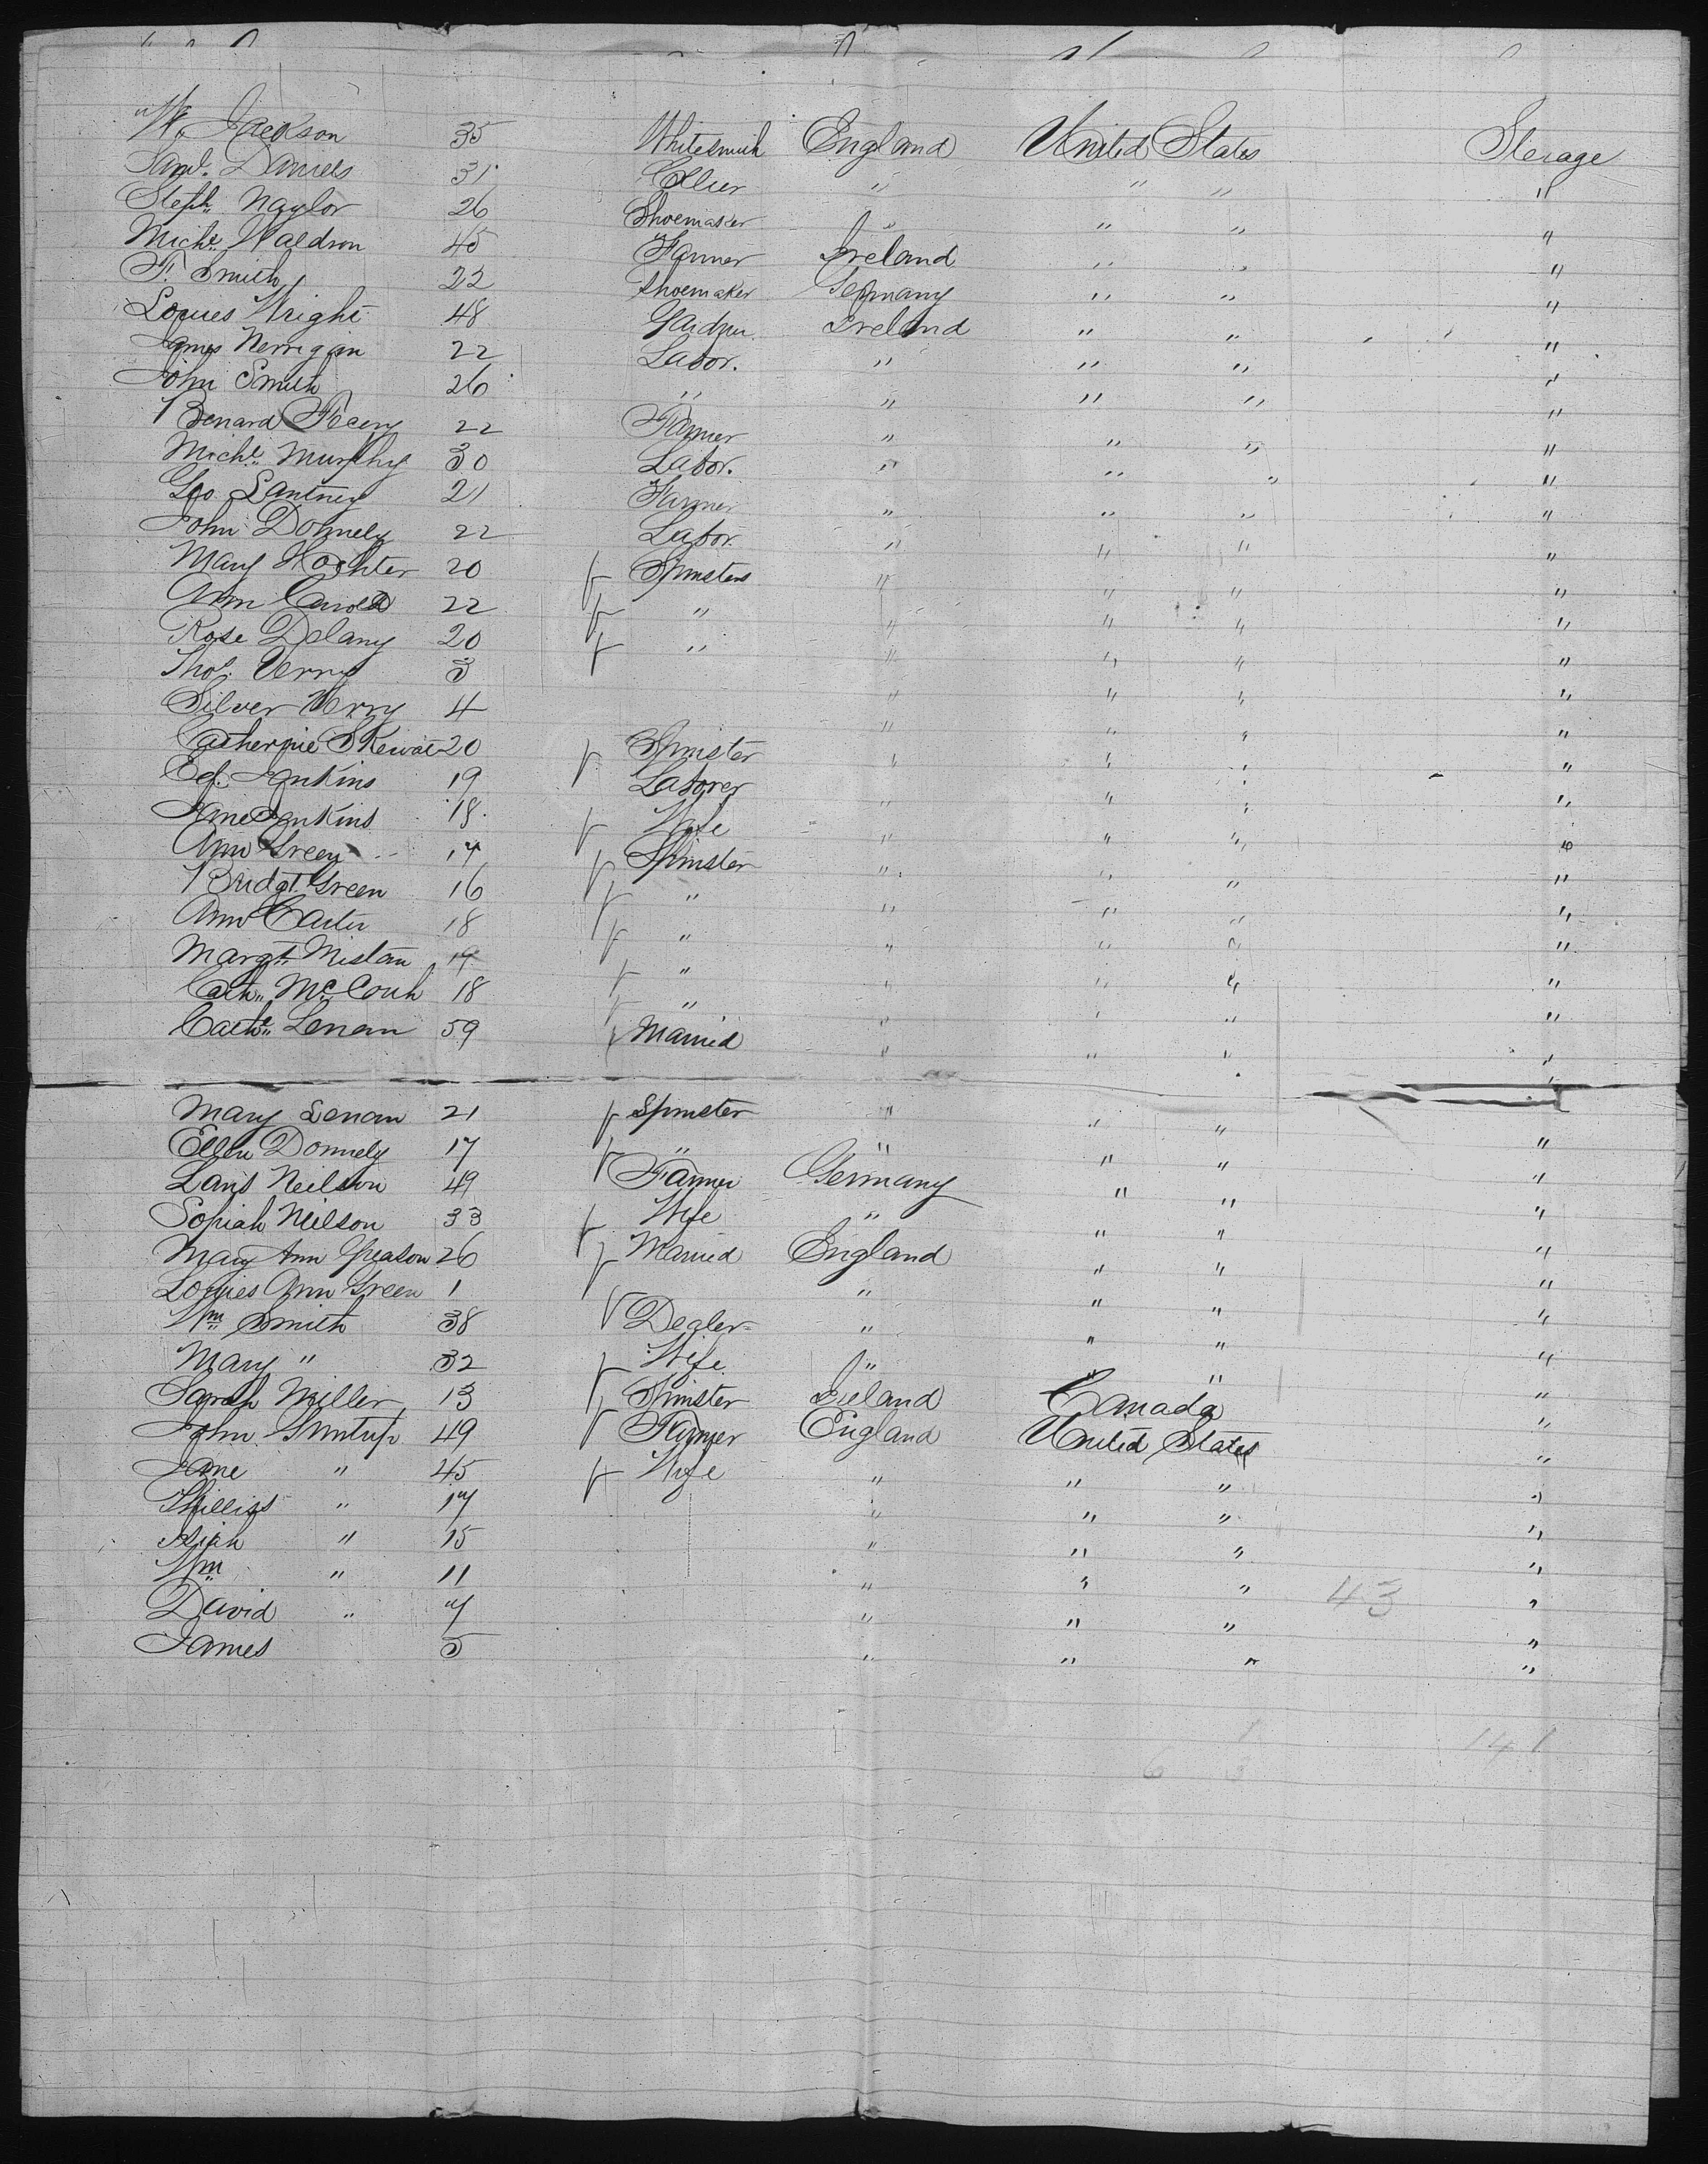 Wm Jackson 35 Whitesmith England United States Sterage
Saml. Daniels 31 Collier " " " "
Steph. Naylor 26 Shoemaker " " " "
Michl. Waldron 45 Farmer Ireland " " "
F. Smith 22 Shoemaker Germany " " "
Louies Wright 48 Gardnr. Ireland " " "
James Nerrigan 22 Labor. " " " "
John Smith 26 " " " " "
Benard Feeny 22 Farmer " " " "
Michl. Murphy 30 Labor. " " " "
Geo. Lantney 21 Farmer " " " "
John Donnely 22 Labor. " " " "
Mary 20 f Spinsters " " " "
Ann 22 f " " " " "
Rose Delany 20 f " " " " "
Thos. Verry 3 " " " "
Silver Verry 4 " " " "
Catherine 20 f Spinster " " " "
Ed. Jenkins 19 Laborer " " " "
Jane Jenkins 18 f Wife " " " "
Ann Green 17 f Spinster " " " "
Bridgt. Green 16 f " " " " "
Ann Carter 18 f " " " " "
Margt. 19 f " " " " "
Cath. 18 f " " " " "
Cathe. Lenan 59 f Married " " " "
Mary Lenan 21 f Spinster " " " "
Ellen Donnely 17 f " " " " "
Lars Neilson 49 Farmer Germany " " "
Sophiah Neilson 33 f Wife " " " "
Mary Ann Greason 26 f Married England " " "
Louies Ann Green 1 " " " "
Wm Smith 38 Dealer " " " "
Mary " 32 f Wife " " " "
Sarah Miller 13 f Spinster Ireland Canada "
John 49 Farmer England United States "
Jane " 45 f Wife " " " "
Phillips " 17 " " " "
Isiah " 15 " " " "
Wm " 11 " " " "
43
David " 7 " " " "
James 5 " " " "
141
6 3